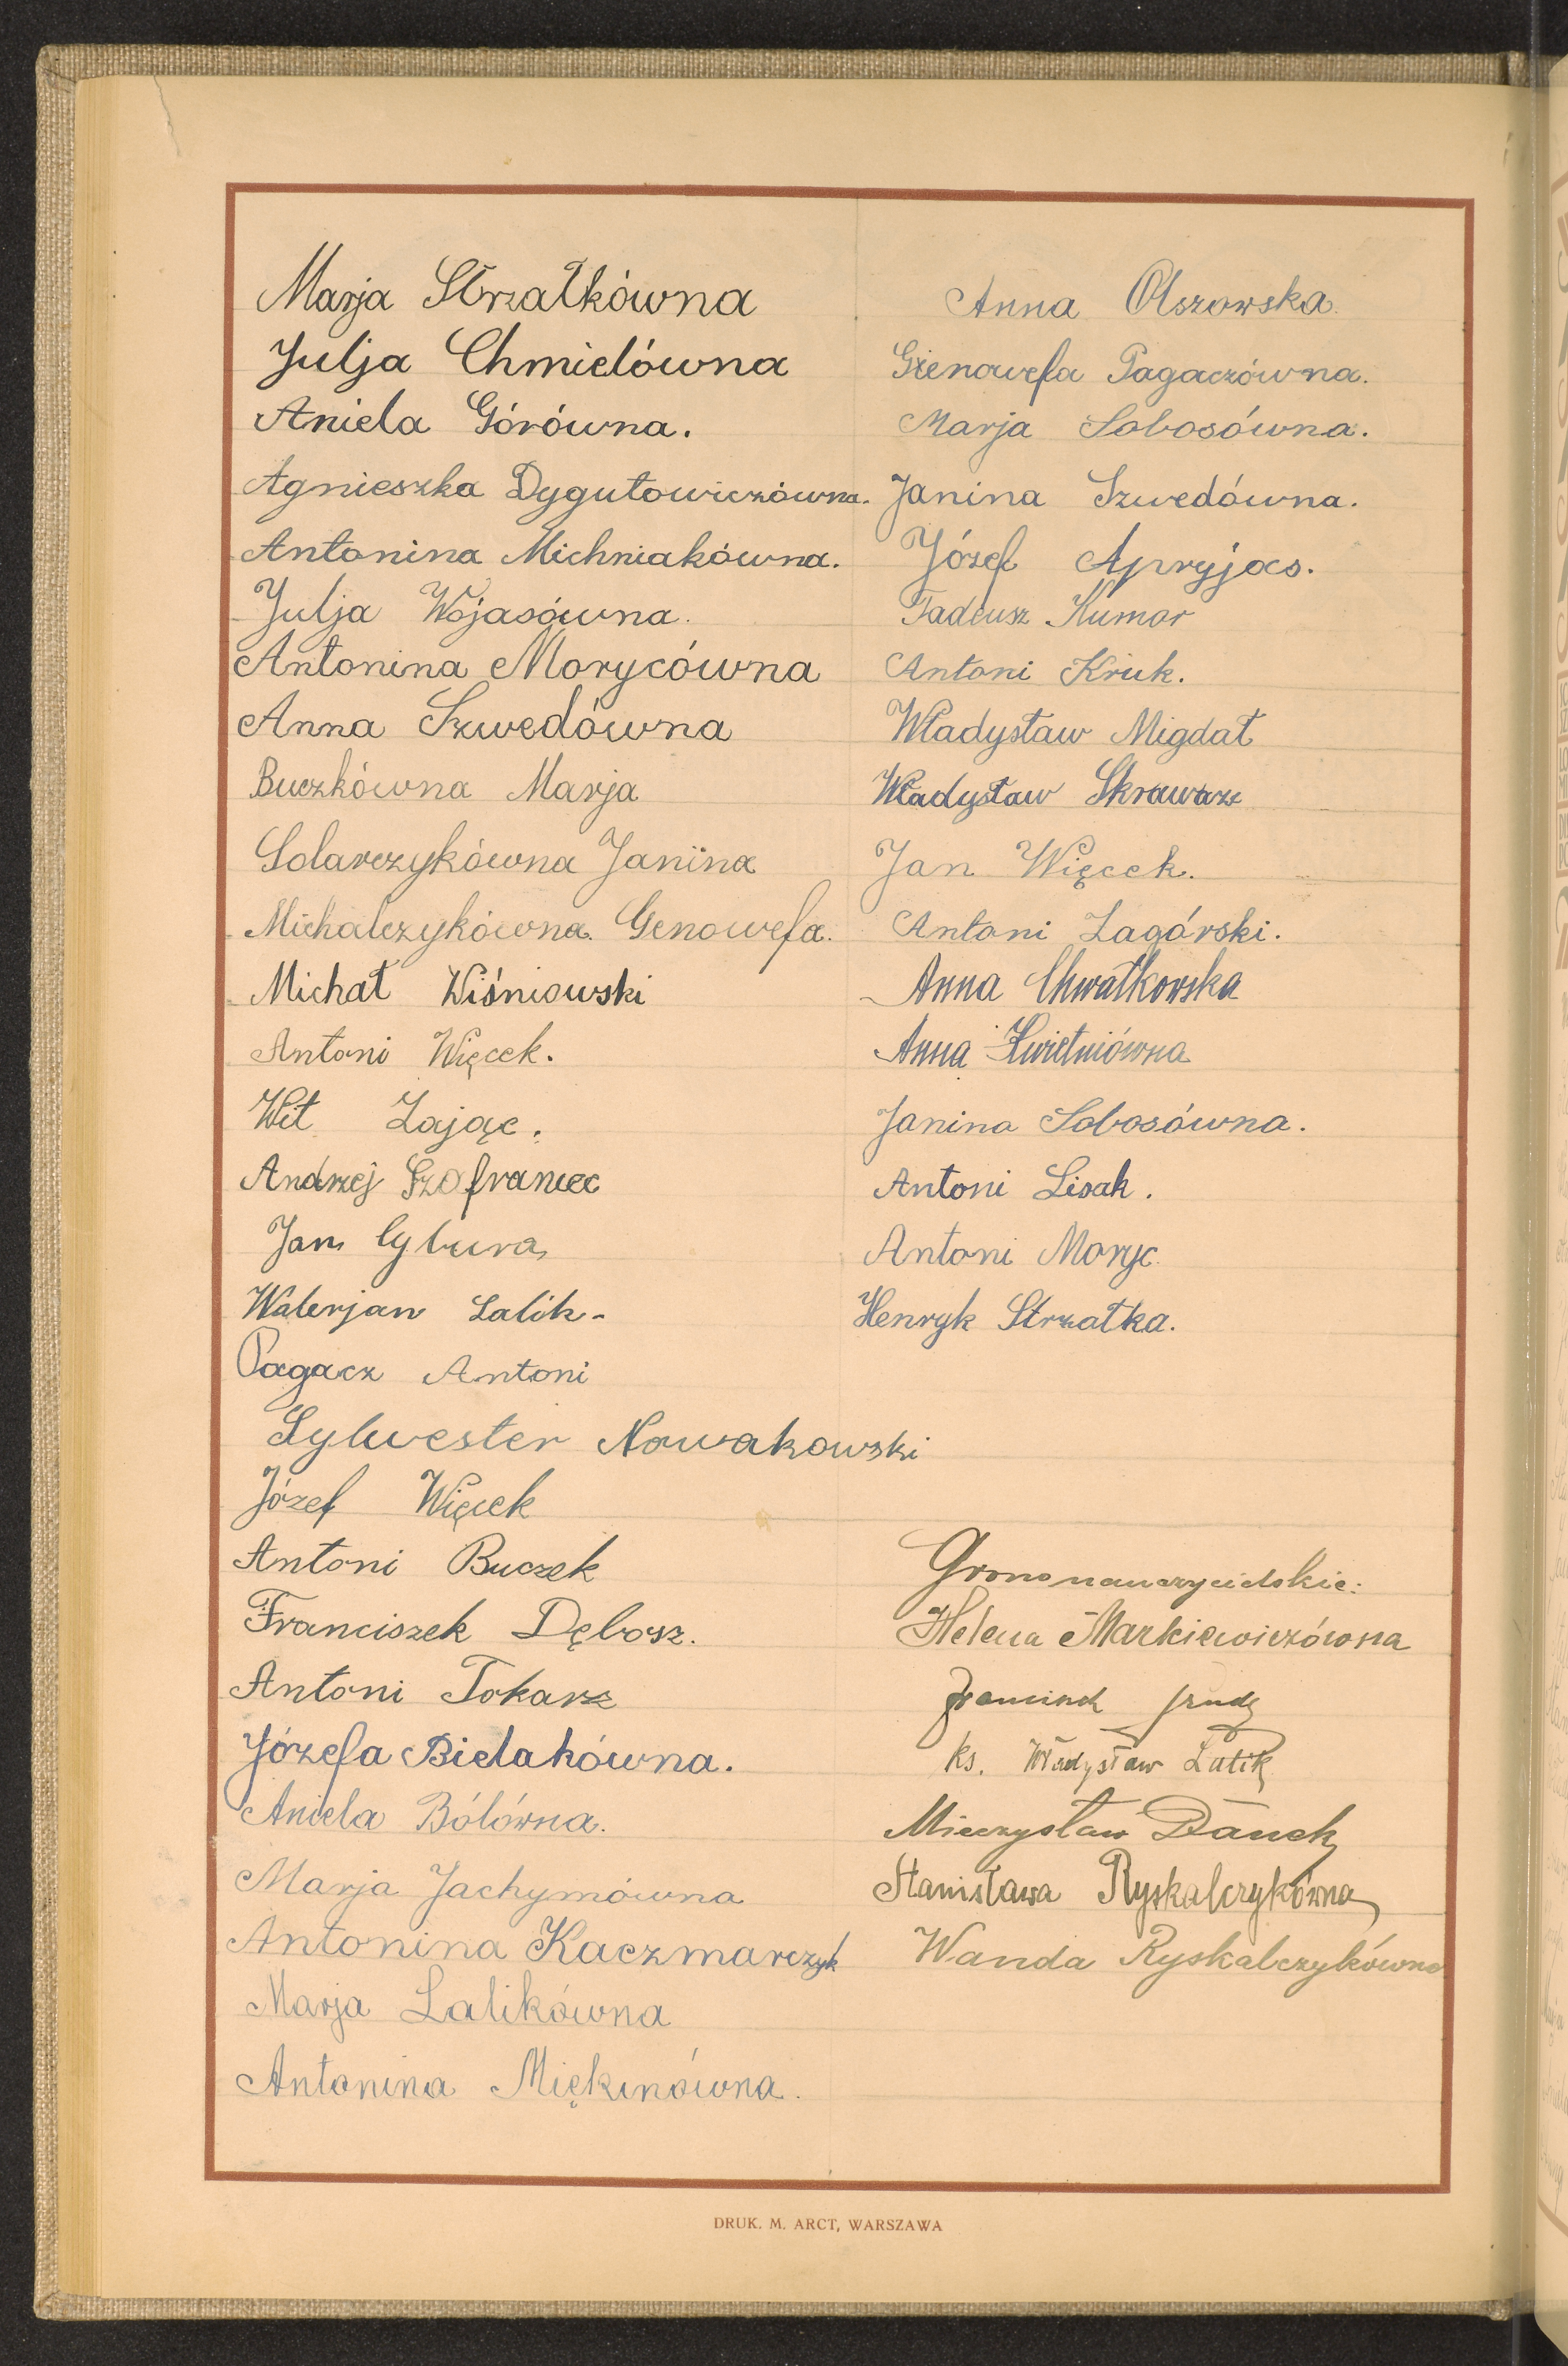 Marja Strzałkówna
Julja Chmielówna
Aniela Górówna.
Agnieszka Dygutowiczówna.
Antonina Michniakówna.
Julja Wojasówna.
Antonina Morycówna
Anna Szwedówna
Buczkówna Marja
Solarczykówna Janina
Michalczykówna Genowefa.
Michał Wiśniowski
Antoni Więcek.
Wit Zając.
Andrzej Szofraniec
Jan Cybura
Walerjan Lalik
Pagacz Antoni
Sylwester Nowakowski
Józef Więcek
Antoni Buczek
Franciszek Dębosz.
Antoni Tokarz
Józefa Bielakówna.
Aniela Bólówna.
Marja Jachymówna
Antonina Kaczmarczyk
Marja Lalikówna
Antonina Miękinówna.
Anna Olszowska.
Gienowefa Pagaczówna.
Marja Sobosówna.
Janina Szwedówna.
Józef Apryjas.
Tadeusz Kumor
Antoni Kruk.
Władysław Migdał
Władysław Skrawarz
Jan Więcek.
Antoni Zagórski.
Anna Chwałkowska
Anna Kwietniówna
Janina Sobosówna.
Antoni Lisak.
Antoni Moryc.
Henryk Strzałka.
Grono nauczycielskie:
Helena Markiewiczówna
ks. Władysław Lalik
Mieczysław Danek
Stanisława Ryskalczykówna
Wanda Ryskalczykówna
DRUK. M. ARCT, WARSZAWA